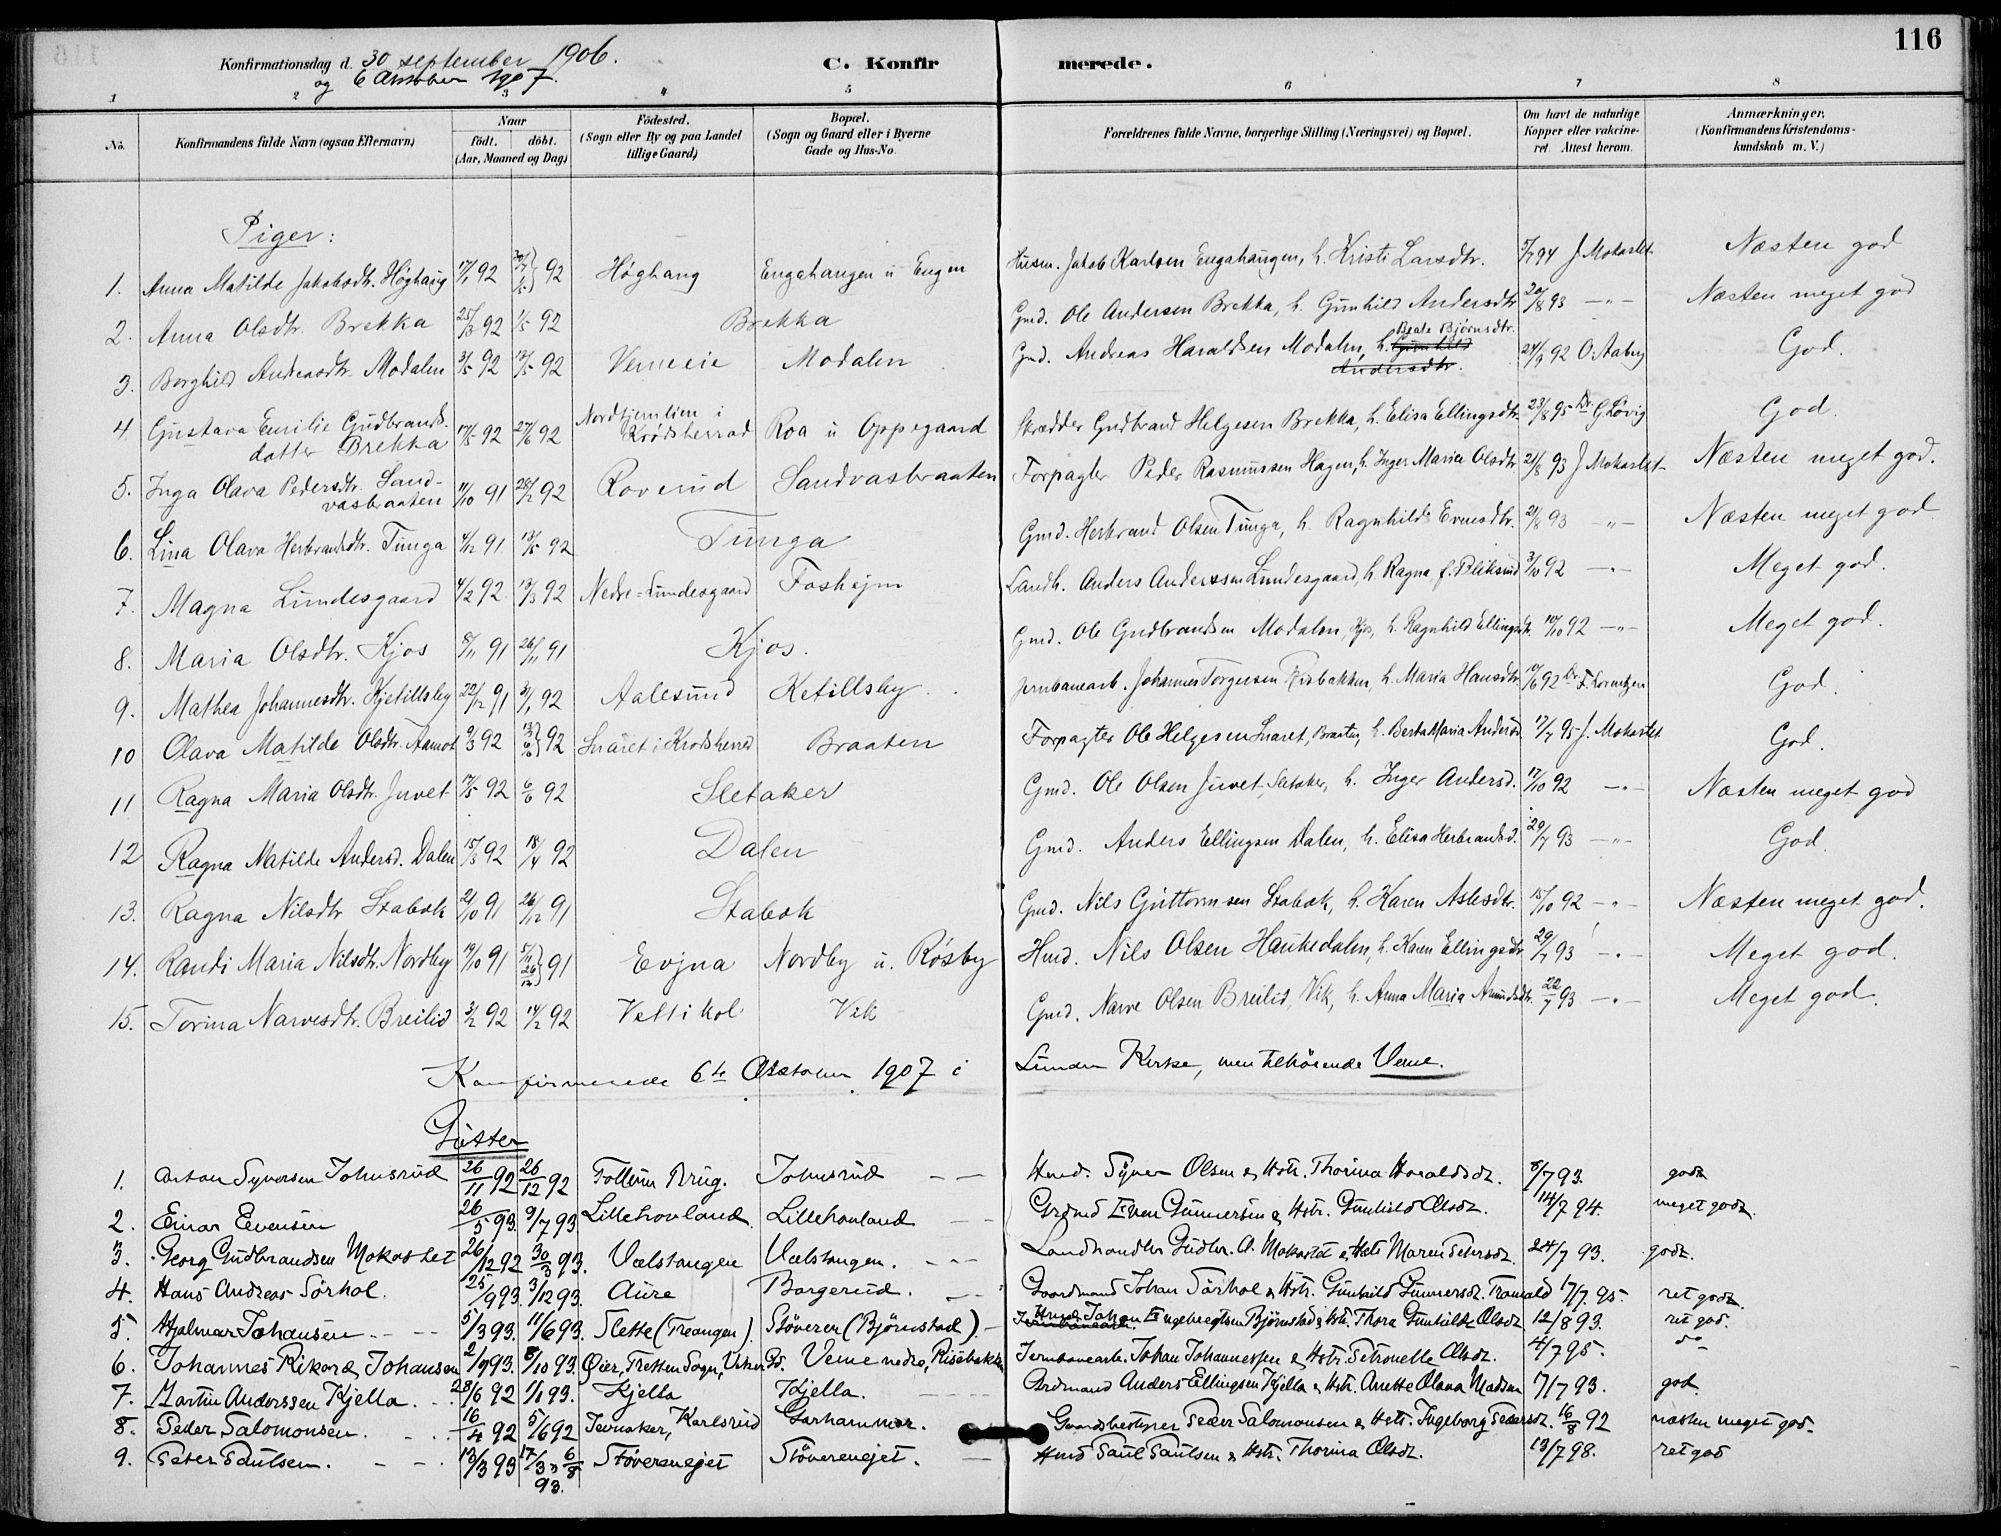 116
Konfirmationsdag d. 30 september 1906.
og 6 Oktober 1907.
C. Konfirmerede.
1 2 3 4 5 6 7 8
No. Konfirmandens fulde Navn (ogsaa Efternavn) Naar födt. döbt. (Aar, Maaned og Dag) Födested. (Sogn eller By og paa Landet tillige Gaard) Bopæl. (Sogn og Gaard eller i Byerne Gade og Hus-No. Forældrenes fulde Navne, borgerlige Stilling (Næringsvei) og Bopæl. Om havt de naturlige Kopper eller vakcineret. Attest herom. Anmærkninger. (Konfirmandens Kristendomskundskab m. V.)
Piger:
1. Anna Matilde Jakobsdtr. Høghaug 17/1 92 92 Høghaug Engahaugen u Engen Husm. Jakob Karlsen Engahaugen, h. Kristi Larsdtr. 5/7 94 J Mokastet Næsten god
2. Anna Olsdtr. Brekka 25/3 92 1/5 92 Brekka Gmd. Ole Andersen Brekka, h. Gunhild Andersdtr 20/8 93 -"- Næsten meget god
3. Borghild Andreasdtr. Modalen 3/5 92 17/5 92 Vemeeie Modalen Gmd. Andreas Haraldsen Modalen, h. Gunhild Andersdtr. Beate Bjørnsdtr. 24/9 92 O. Aaberg God.
4. Gustava Emilie Gudbrandsdatter Brekka 17/5 92 27/6 92 Nordtjernlien i Krødsherrad Roa u Oppegaard Skrædder Gudbrand Helgesen Brekka, h. Elisa Ellingsdtr. 23/8 95 Dr. G Løvig God.
5. Inga Olava Pedersdtr. Sandvasbraaten 11/10 91 28/2 92 Roverud Sandvasbraaten Forpagter Peder Rasmussen Hagen, h. Inger Marie Olsdtr 21/8 93 J Mokastet Næsten meget god.
6. Lina Olava Herbrandsdtr. Tunga 4/12 91 13/5 92 Tunga Gmd. Herbrand Olsen Tunga, h. Ragnhild Evensdtr. 21/8 93 -"- Næsten meget god
7. Magna Lundesgaard 4/2 92 13/3 92 Nedre-Lundesgaard Foshejm Landh. Anders Anderssen Lundesgaard, h. Ragna f. Bliksrud 3/10 92 -"- Meget god.
8. Maria Olsdtr. Kjos 8/11 91 26/11 91 Kjos. Gmd. Ole Gudbrandsen Modalen, Kjos, h. Ragnhild Ellingsdtr. 10/10 92 -"- Meget god.
9. Mathea Johannesdtr. Kjetillsby 22/12 91 31/1 92 Aalesund Ketillsby Jernbanearb. Johannes Torgersen Risbakken, h. Maria Hansdtr 10/6 92 Dr F. Lorentzen God.
10 Olava Matilde Olsdtr. Aamot 9/3 92 92 Snaret i Krødsherred Braaten Forpagter Ole Helgesen Snaret, Braaten, h. Berta Maria Andersd. 17/7 95 J. Mokastet God.
11 Ragna Maria Olsdtr. Juvet 17/5 92 6/6 92 Sletaker Gmd. Ole Olsen Juvet, Sletaker, h. Inger Andersd. 17/10 92 -"- Næsten meget god
12 Ragna Matilde Andersd. Dalen 15/3 92 18/4 92 Dalen Gmd. Anders Ellingsen Dalen, h. Elisa Herbrandsd. 20/7 93 -"- God.
13. Ragna Nilsdtr Stabok 21/10 91 26/12 91 Stabok Gmd. Nils Guttormsen Stabok, h. Karen Aslesdtr. 15/10 92 -"- Næsten meget god.
14. Randi Maria Nilsdtr. Nordby 19/10 91 91 Evjua Nordby u. Røsby Hmd. Nils Olsen Haukedalen, h. Karen Ellingsdtr 20/7 93 -"- Meget god.
15. Torina Narvesdtr. Breilid 3/2 92 14/2 92 Veltikol Vik Gmd. Narve Olsen Breilid, Vik, h. Anna Maria Amundsdtr. 22/7 93 -"- Meget god.
Konfirmerede 6te Oktober 1907 i Lunder Kirke, men tilhörende Veme.
Gutter
1. Anton Syversen Johnsrud 26/11 92 26/12 92 Follum Brug. Johnsrud Hmd. Syver Olsen & Hstr. Thorina Haraldsdt. 8/7 93. godt
2. Einar Evensen 26/5 93. 9/7 93 Lillehovland Lillehovland Grdmd Even Gunnersen & Hstr. Gunhild Olsdt. 14/7 94. meget godt.
3. Georg Gudbrandsen Mokastet 26/12 92 30/3 93. Vælstangen Vælstangen. Landhandler Gudbr. A. Mokastet & Hstr Maren Petersdt. 24/7 93. godt.
4. Hans Andreas Sörhol. 25/9 93. 3/12 93. Aure Borgerud. Gaardmand Johan Sörhol & Hstr. Gunhild Gunnersdt. Tronrud 17/7. 95. ret godt.
5. Hjalmar Johansen 5/3 93. 11/6 93. Slette (Treangen). Stöveren (Björnstad) Jernbanearb. Hmd. Johan Engebregtsen Björnstad & Hstr. Thora Gunhild Olsdt 12/8 93. ret god.
6. Johannes Rikard Johansen 2/9 93. 8/10 93. Öier, Tretten Sogn, Veme nedre, Risebakken Jernbanearb. Johan Johannessen & Hstr. Petronelle Olsdt. 4/7 95. do
7. Martin Anderssen Kjella 28/6 92 1/1 93. Kjella Kjella. Grdmand Anders Ellingsen Kjella & Hstr. Anette Olava Madsen 17/7 93. god.
8. Peder Salomonsen. 16/4 92 5/6 92 Jevnaker, Karlsrud Garhammer. Gaardsbestyrer Peder Salomonsen & Hstr. Ingeborg Pedersdt. 16/8 92 næsten meget god
9. Peter Paulsen. 13/3 93 17/3 & 6/8 93. Stöverenejet Stöverenejet. Hmd Paul Paulsen & Hstr. Thorina Olsdt. 13/7 98. ret god